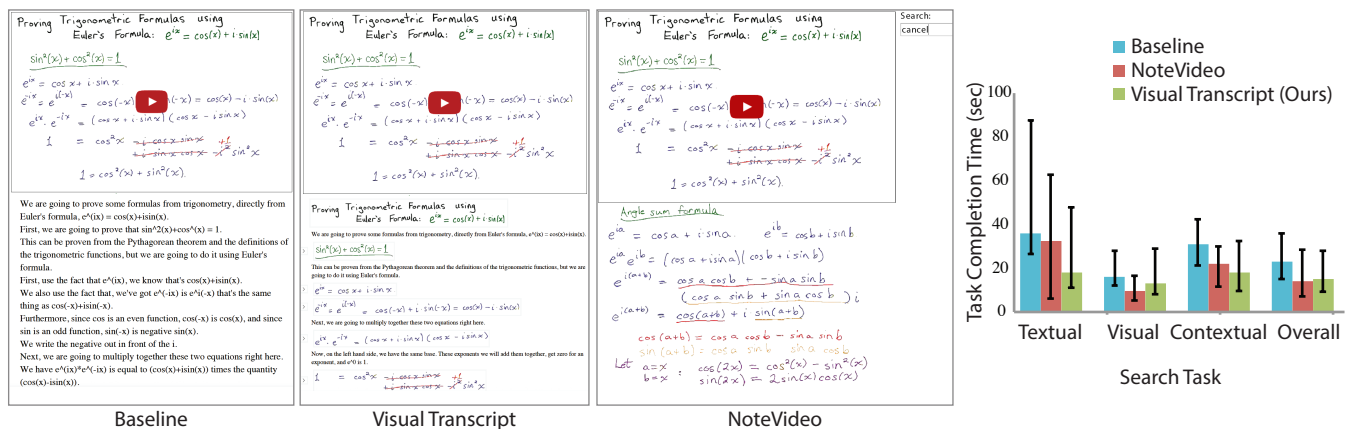 Proving Trigonometric Formulas using
Euler's Formula: e^{ix} = cos(x) + i·sin(x)
sin²(x) + cos²(x) = 1
e^{ix} = cos x + i·sin x
e^{-ix} = e^{i(-x)} = cos(-x) n(-x) = cos(x) - i·sin(x)
e^{ix}·e^{-ix} = (cos x + i·sin x)(cos x - i·sin x)
1 = cos²x - i cos x sin x +1
+ i sin x cos x - i² sin²x
1 = cos²(x) + sin²(x).
We are going to prove some formulas from trigonometry, directly from
Euler's formula, e^(ix) = cos(x)+isin(x).
First, we are going to prove that sin^2(x)+cos^(x) = 1.
This can be proven from the Pythagorean theorem and the definitions of
the trigonometric functions, but we are going to do it using Euler's
formula.
First, use the fact that e^(ix), we know that's cos(x)+isin(x).
We also use the fact that, we've got e^(-ix) is e^i(-x) that's the same
thing as cos(-x)+isin(-x).
Furthermore, since cos is an even function, cos(-x) is cos(x), and since
sin is an odd function, sin(-x) is negative sin(x).
We write the negative out in front of the i.
Next, we are going to multiply together these two equations right here.
We have e^(ix)*e^(-ix) is equal to (cos(x)+isin(x)) times the quantity
(cos(x)-isin(x)).
Baseline
Proving Trigonometric Formulas using
Euler's Formula: e^{ix} = cos(x) + i·sin(x)
sin²(x) + cos²(x) = 1
e^{ix} = cos x + i·sin x
e^{-ix} = e^{i(-x)} = cos(-x) n(-x) = cos(x) - i·sin(x)
e^{ix}·e^{-ix} = (cos x + i·sin x)(cos x - i·sin x)
1 = cos²x - i cos x sin x +1
+ i sin x cos x - i² sin²x
1 = cos²(x) + sin²(x).
Proving Trigonometric Formulas using
Euler's Formula: e^{ix} = cos(x) + i·sin(x)
We are going to prove some formulas from trigonometry, directly from Euler's formula, e^(ix) = cos(x)+isin(x).
sin²(x) + cos²(x) = 1
This can be proven from the Pythagorean theorem and the definitions of the trigonometric functions, but we are
going to do it using Euler's formula.
e^{ix} = cos x + i·sin x
e^{-ix} = e^{i(-x)} = cos(-x) + i·sin(-x) = cos(x) - i·sin(x)
Next, we are going to multiply together these two equations right here.
e^{ix}·e^{-ix} = (cos x + i·sin x)(cos x - i·sin x)
Now, on the left hand side, we have the same base. These exponents we will add them together, get zero for an
exponent, and e^0 is 1.
1 = cos²x - i cos x sin x +1
+ i sin x cos x - i² sin²x
Visual Transcript
Proving Trigonometric Formulas using
Euler's Formula: e^{ix} = cos(x) + i·sin(x)
sin²(x) + cos²(x) = 1
e^{ix} = cos x + i·sin x
e^{-ix} = e^{i(-x)} = cos(-x) n(-x) = cos(x) - i·sin(x)
e^{ix}·e^{-ix} = (cos x + i·sin x)(cos x - i·sin x)
1 = cos²x - i cos x sin x +1
+ i sin x cos x - i² sin²x
1 = cos²(x) + sin²(x).
Search:
cancel
Angle sum formula
e^{ia} = cos a + i·sin a e^{ib} = cos b + i sin b
e^{ia} e^{ib} = (cos a + i sin a)(cos b + i sin b)
e^{i(a+b)} = cos a cos b + - sin a sin b
(cos a sin b + sin a cos b) i
e^{i(a+b)} = cos(a+b) + i sin(a+b)
cos(a+b) = cos a cos b - sin a sin b
sin(a+b) = cos a sin b sin a cos b
Let a=x : cos(2x) = cos²(x) - sin²(x)
b=x sin(2x) = 2 sin(x) cos(x)
NoteVideo
Baseline
NoteVideo
Visual Transcript (Ours)
Task Completion Time (sec)
100
80
60
40
20
0
Textual Visual Contextual Overall
Search Task